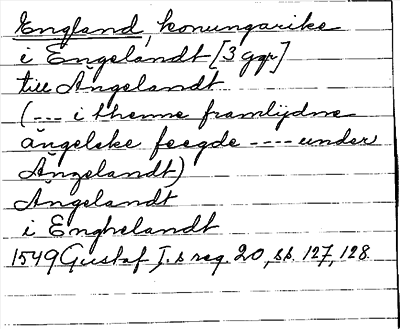 England, konungarike
i Engelandt [3 ggr]
till Ängelandt
(--- i thenne framlijdne
ängelske feegde ---- under
Ängelandt)
Ängelandt
i Enghelandt
1549 Gustaf I.s reg. 20, ss. 127, 128.